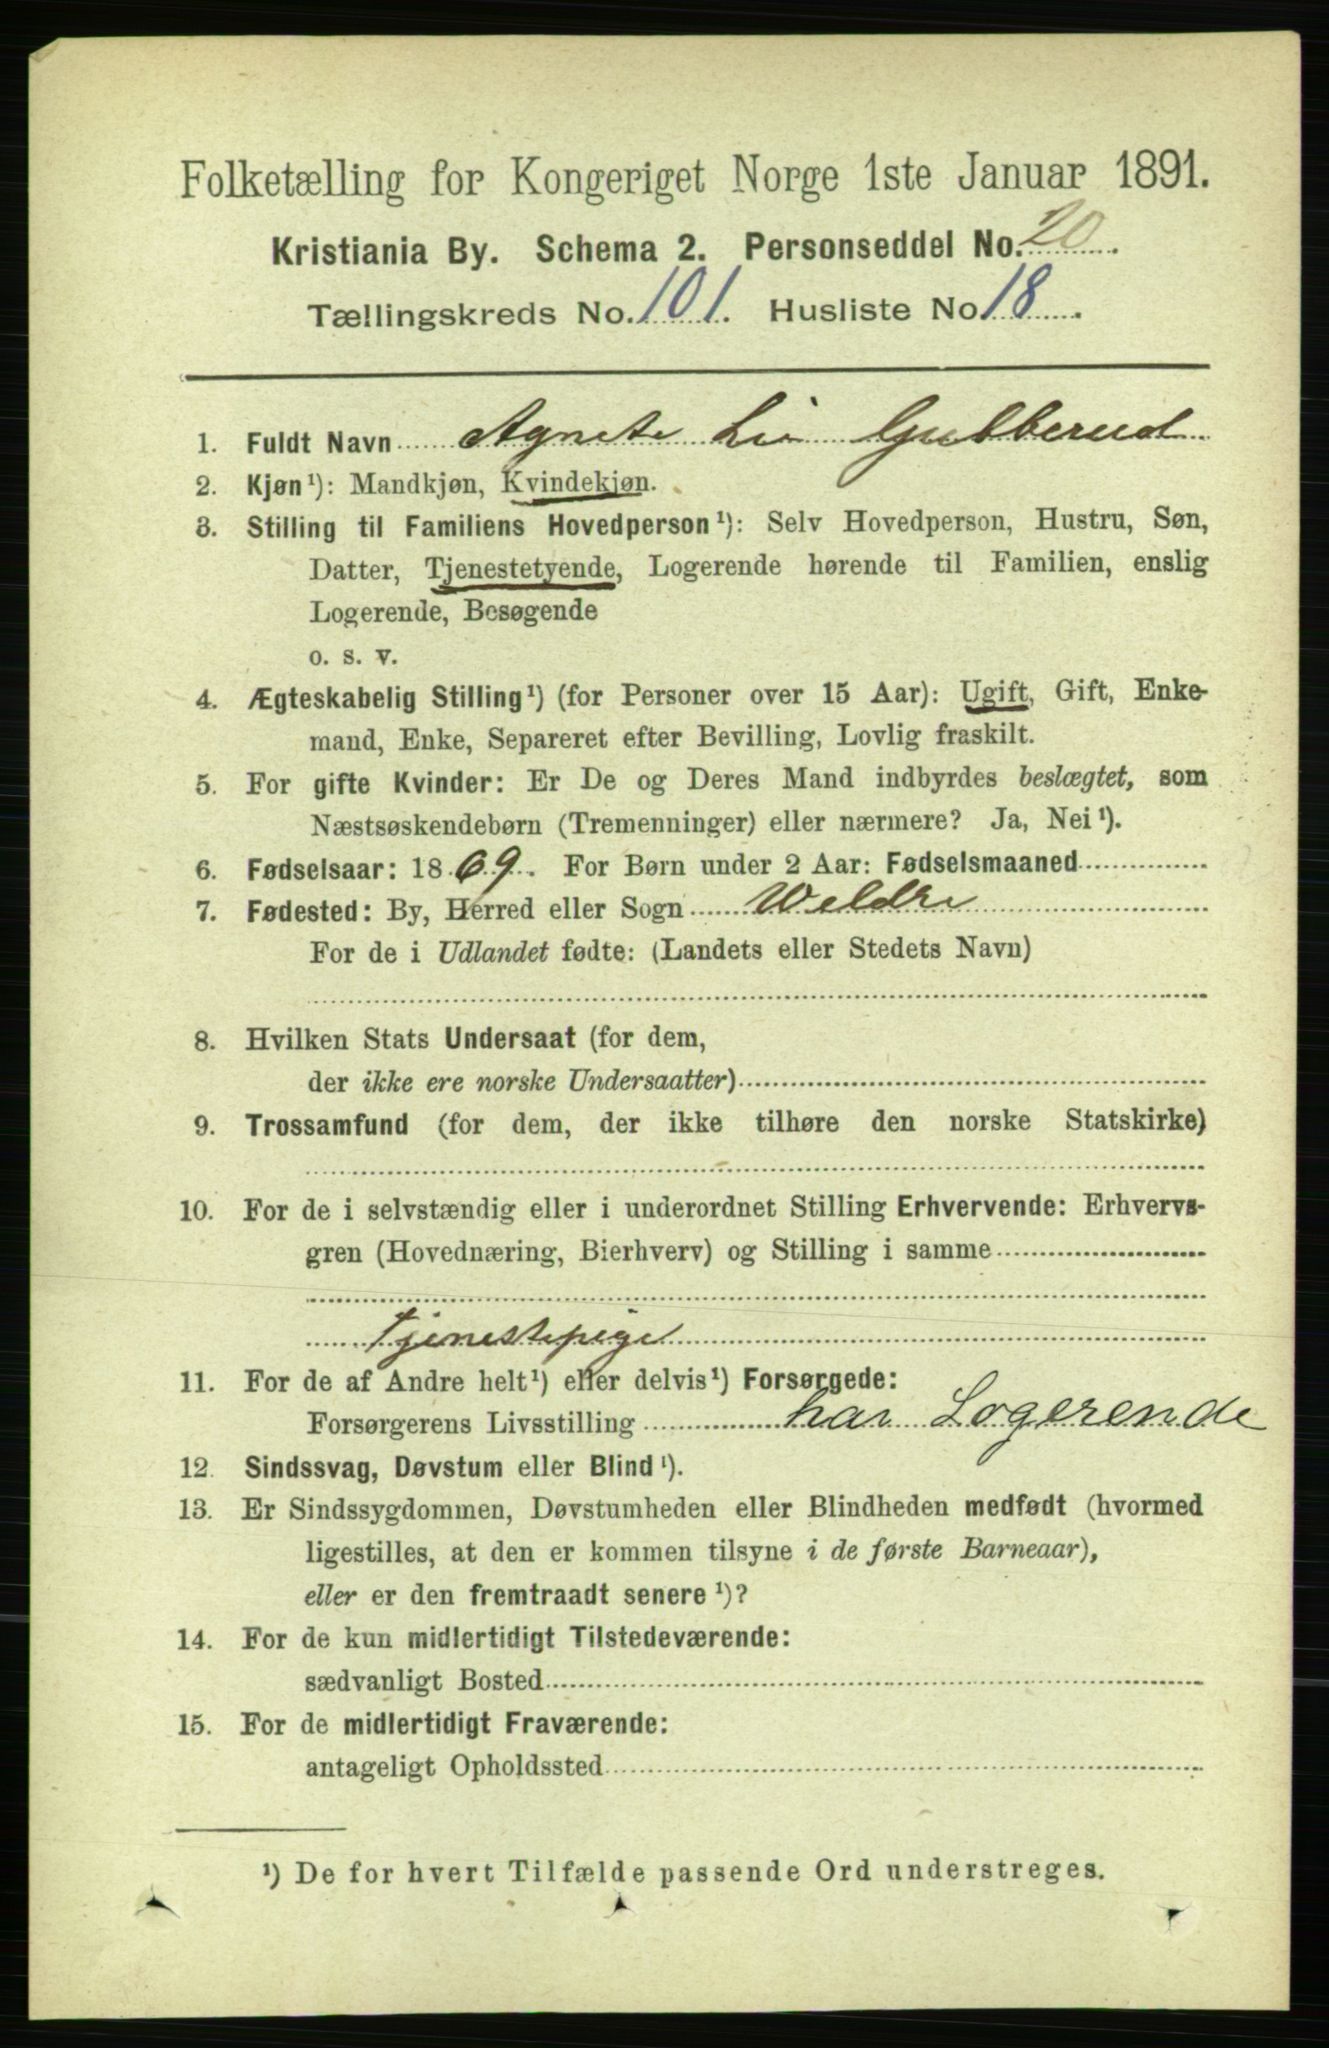 Folketælling for Kongeriget Norge 1ste Januar 1891.
Kristiania By. Schema 2. Personseddel No. 20.
Tællingskreds No. 101. Husliste No 18.
1. Fuldt Navn Agnete Lie Gulberud
2. Kjøn¹): Mandkjøn, Kvindekjøn.
3. Stilling til Familiens Hovedperson¹): Selv Hovedperson, Hustru, Søn,
Datter, Tjenestetyende, Logerende hørende til Familien, enslig
Logerende, Besøgende
o. s. v.
4. Ægteskabelig Stilling¹) (for Personer over 15 Aar): Ugift, Gift, Enke-
mand, Enke, Separeret efter Bevilling, Lovlig fraskilt.
5. For gifte Kvinder: Er De og Deres Mand indbyrdes beslægtet, som
Næstsøskendebørn (Tremenninger) eller nærmere? Ja, Nei¹).
6. Fødselsaar: 1869. For Børn under 2 Aar: Fødselsmaaned
7. Fødested: By, Herred eller Sogn Weldre
For de i Udlandet fødte: (Landets eller Stedets Navn)
8. Hvilken Stats Undersaat (for dem,
der ikke ere norske Undersaatter)
9. Trossamfund (for dem, der ikke tilhøre den norske Statskirke)
10. For de i selvstændig eller i underordnet Stilling Erhvervende: Erhvervs-
gren (Hovednæring, Bierhverv) og Stilling i samme
Tjenestepige
11. For de af Andre helt¹) eller delvis¹) Forsørgede:
Forsørgerens Livsstilling har Logerende
12. Sindssvag, Døvstum eller Blind¹).
13. Er Sindssygdommen, Døvstumheden eller Blindheden medfødt (hvormed
ligestilles, at den er kommen tilsyne i de første Barneaar),
eller er den fremtraadt senere¹)?
14. For de kun midlertidigt Tilstedeværende:
sædvanligt Bosted
15. For de midlertidigt Fraværende:
antageligt Opholdssted
¹) De for hvert Tilfælde passende Ord understreges.